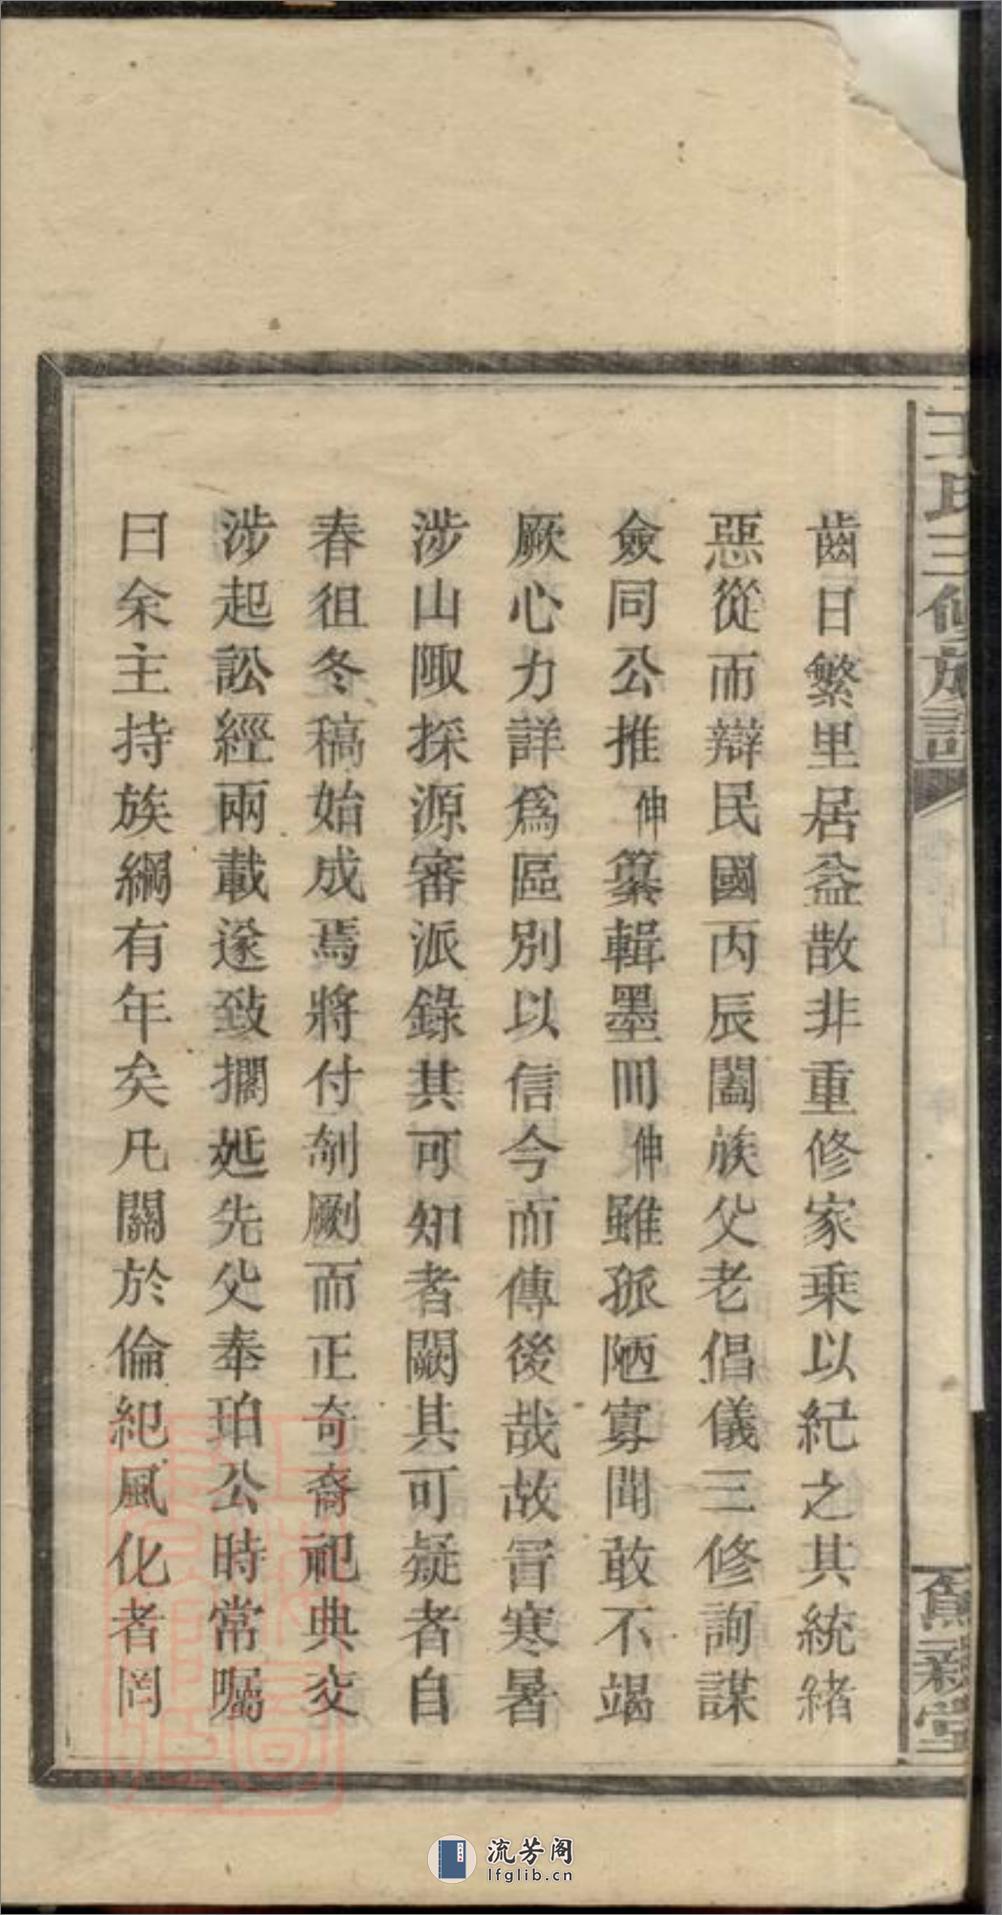 齒日繁里居益散非重修家乗以紀之其統緒
惡從而辯民國丙辰闔族父老倡儀三修詢謀
僉同公推伸纂輯墨冊伸雖孤陋寡聞敢不竭
厥心力詳爲區別以信今而傳後哉故冒寒暑
涉山陬採源審派錄其可知者闕其可疑者自
春徂冬稿始成焉將付剞劂而正奇裔祀典交
涉起訟經兩載遂致擱延先父奉珀公時常囑
曰余主持族綱有年矣凡關於倫紀風化者罔
王氏三修族譜
流芳阁
lfglib.cn